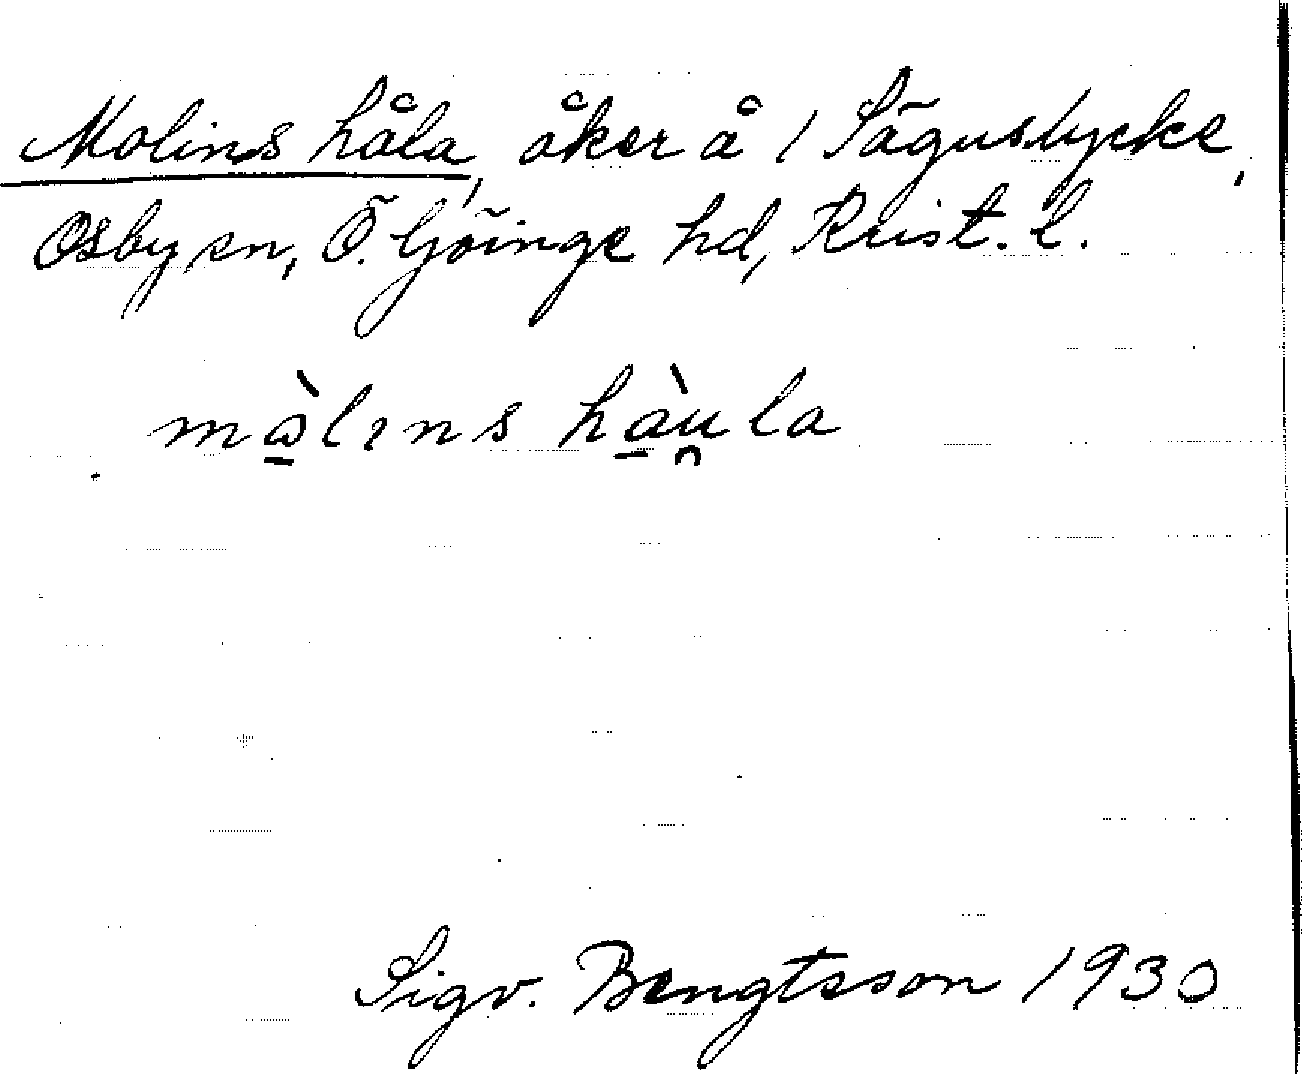 Molins håla, åker å 1 Sägustycke,
Osby sn, Ö. Göinge hd, Krist. l.
mὼ̱lıns hà̱u̯la
Sigv. Bengtsson 1930